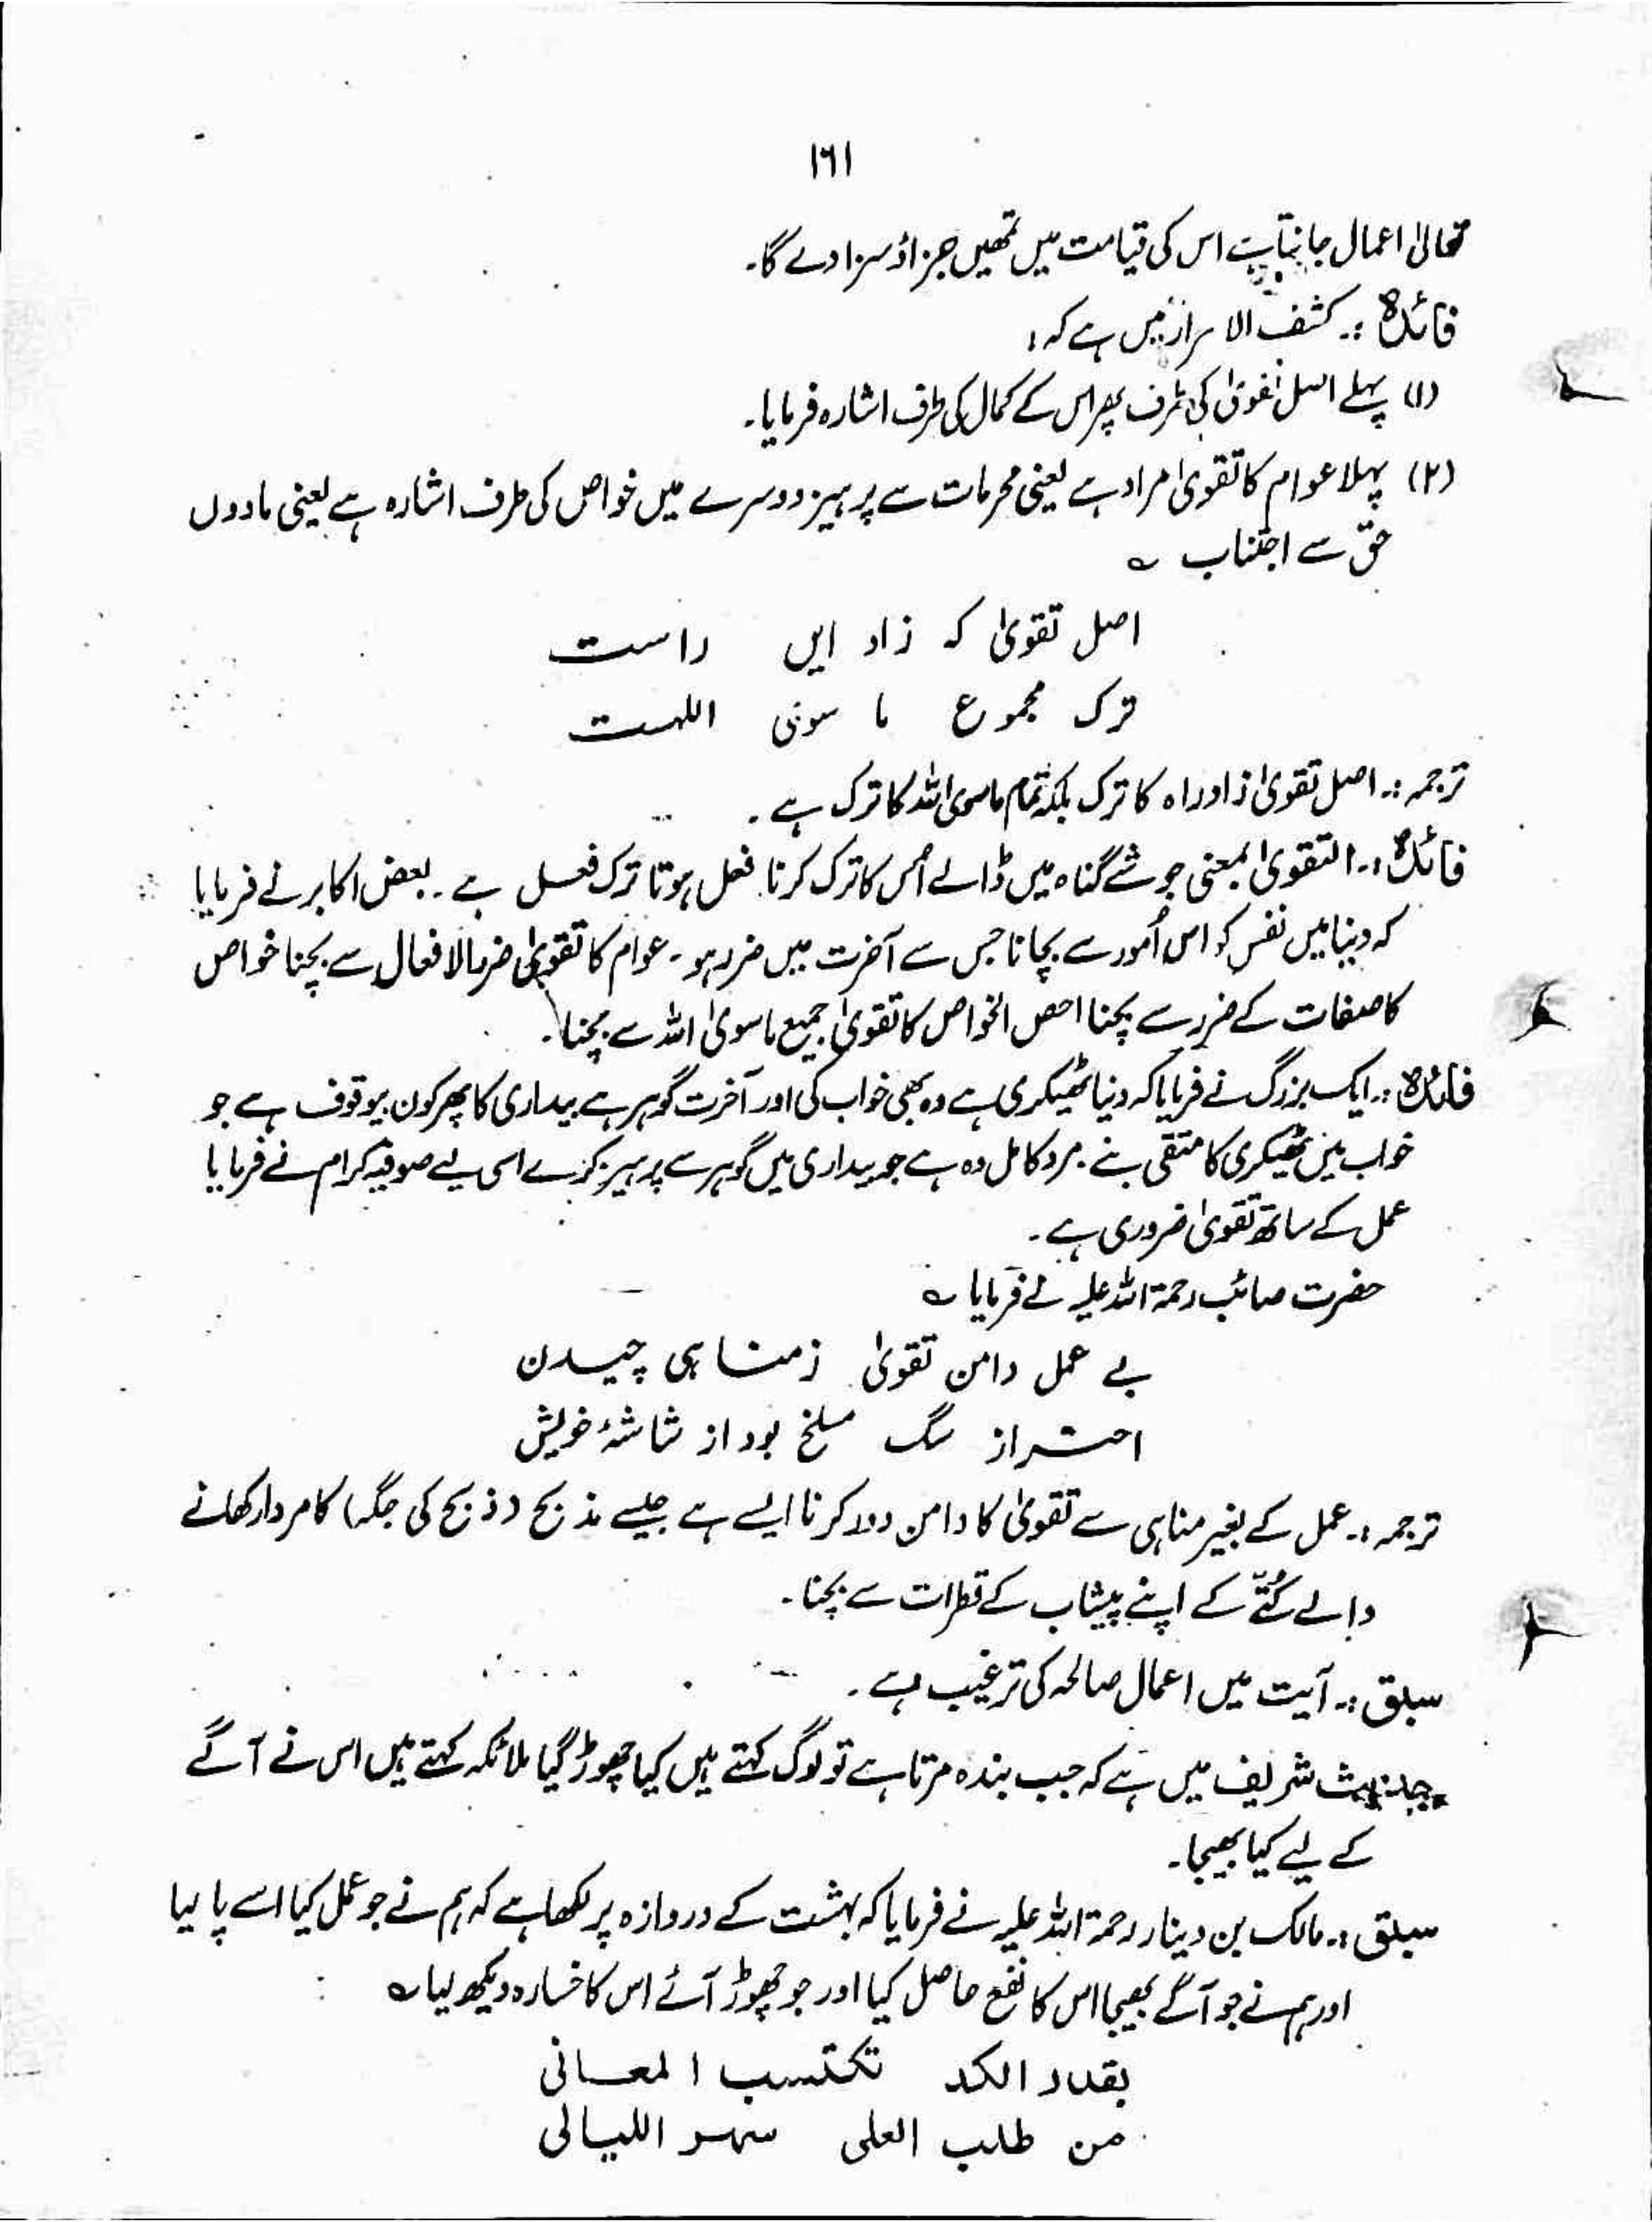 ۱۶۱
تعالیٰ اعمال جانتا ہے اس کی قیامت میں تمھیں جزاؤ سزا دے گا۔
فائدہ :۔ کشف الاسرار میں ہے کہ :
(۱) پہلے اصل تقویٰ کی طرف پھر اس کے کمال کی طرف اشارہ فرمایا۔
(۲) پہلا عوام کا تقویٰ مراد ہے یعنی محرمات سے پرہیز دوسرے میں خواص کی طرف اشارہ ہے یعنی مادوں
حق سے اجتناب ؎
اصل تقویٰ کہ زاد ایں راست
ترک مجموع ما سوئی اللہست
ترجمہ :۔ اصل تقویٰ زاد راہ کا ترک بلکہ تمام ماسوی اللہ کا ترک ہے ۔
فائدہ :۔ التقویٰ بمعنی جو شے گناہ میں ڈالے اُس کا ترک کرنا فعل ہو تا ترک فعل ہے ۔ بعض اکابر نے فرمایا
کہ دینا میں نفس کو اس اُمور سے بچانا جس سے آخرت میں ضرر ہو ۔ عوام کا تقویٰ ضرر الافعال سے بچنا خواص
کا صفات کے ضرر سے بچنا اخص الخواص کا تقویٰ جمیع ماسویٰ اللہ سے بچنا۔
فائدہ :۔ ایک بزرگ نے فرمایا کہ دنیا ٹھیکری ہے وہ بھی خواب کی اور آخرت گوہر ہے بیداری کا پھر کون بیوقوف ہے جو
خواب میں ٹھیکری کا متقی بنے ۔ مرد کامل وہ ہے جو بیداری میں گوہر سے پرہیز کرے اسی لیے صوفیہ کرام نے فرمایا
عمل کے ساتھ تقویٰ ضروری ہے ۔
حضرت صائب رحمۃ اللہ علیہ نے فرمایا ؎
بے عمل دامن تقویٰ زمناہی چیدن
احتراز سگ مسلخ بود از شاشۂ خویش
ترجمہ :۔ عمل کے بغیر مناہی سے تقویٰ کا دامن دور کرنا ایسے ہے جیسے مذبح (ذبح کی جگہ) کا مردار کھانے
والے کُتّے کے اپنے پیشاب کے قطرات سے بچنا ۔
سبق :۔ آیت میں اعمال صالحہ کی ترغیب ہے ۔
حدیث شریف میں ہے کہ جب بندہ مرتا ہے تو لوگ کہتے ہیں کیا چھوڑ گیا ملائکہ کہتے ہیں اس نے آگے
کے لیے کیا بھیجا ۔
سبق :۔ مالک بن دینار رحمۃ اللہ علیہ نے فرمایا کہ بہشت کے دروازہ پر لکھا ہے کہ ہم نے جو عمل کیا اسے پا لیا
اور ہم نے جو آگے بھیجا اس کا نفع حاصل کیا اور جو چھوڑ آئے اس کا خسارہ دیکھ لیا ؎
بقدر الکد تکتسب المعالی
من طلب العلی سہر اللیالی